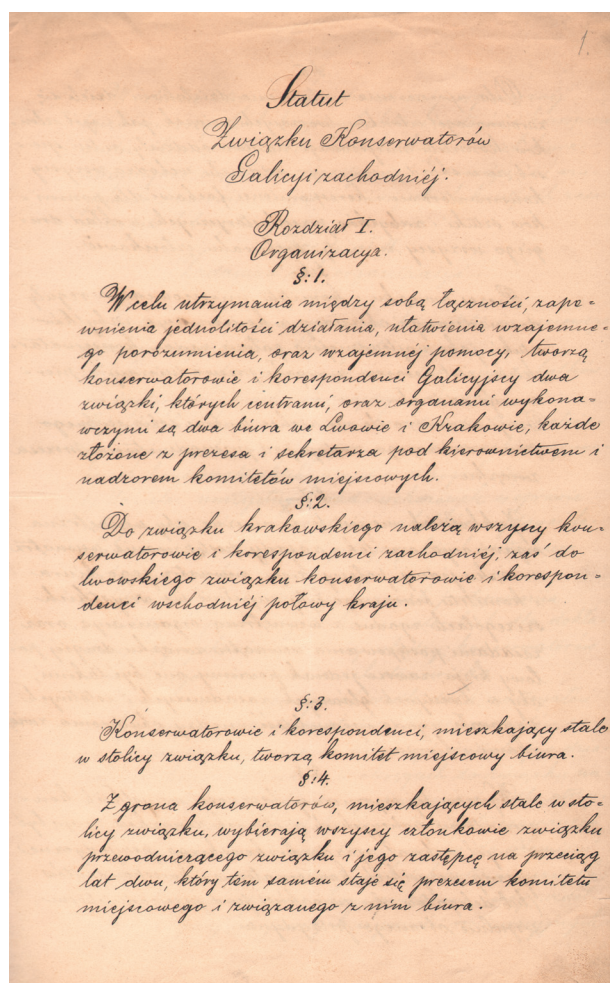 1.
Statut
Związku Konserwatorów
Galicyi zachodniéj.
Rozdział I.
Organizacya.
§:1.
W celu utrzymania między sobą łączności, zape=
wnienia jednolitości działania, ułatwienia wzajemne=
go porozumienia, oraz wzajemnéj pomocy, tworzą
konserwatorowie i korespondenci Galicyjscy dwa
związki, których centrami, oraz organami wykona=
wczymi są dwa biura we Lwowie i Krakowie, każde
złożone z prezesa i sekretarza pod kierownictwem i
nadzorem komitetów miejscowych.
§:2.
Do związku krakowskiego należą wszyscy kon=
serwatorowie i korespondenci zachodniéj, zaś do
lwowskiego związku konserwatorowie i korespon=
denci wschodniéj połowy kraju.
§:3.
Konserwatorowie i korespondenci, mieszkający stale
w stolicy związku, tworzą komitet miejscowy biura.
§:4.
Z grona konserwatorów, mieszkających stale w sto=
licy związku, wybierają wszyscy członkowie związku
przewodniczącego związku i jego zastępcę na przeciąg
lat dwu, który tém samém staje się prezesem komitetu
miejscowego i związanego z nim biura.